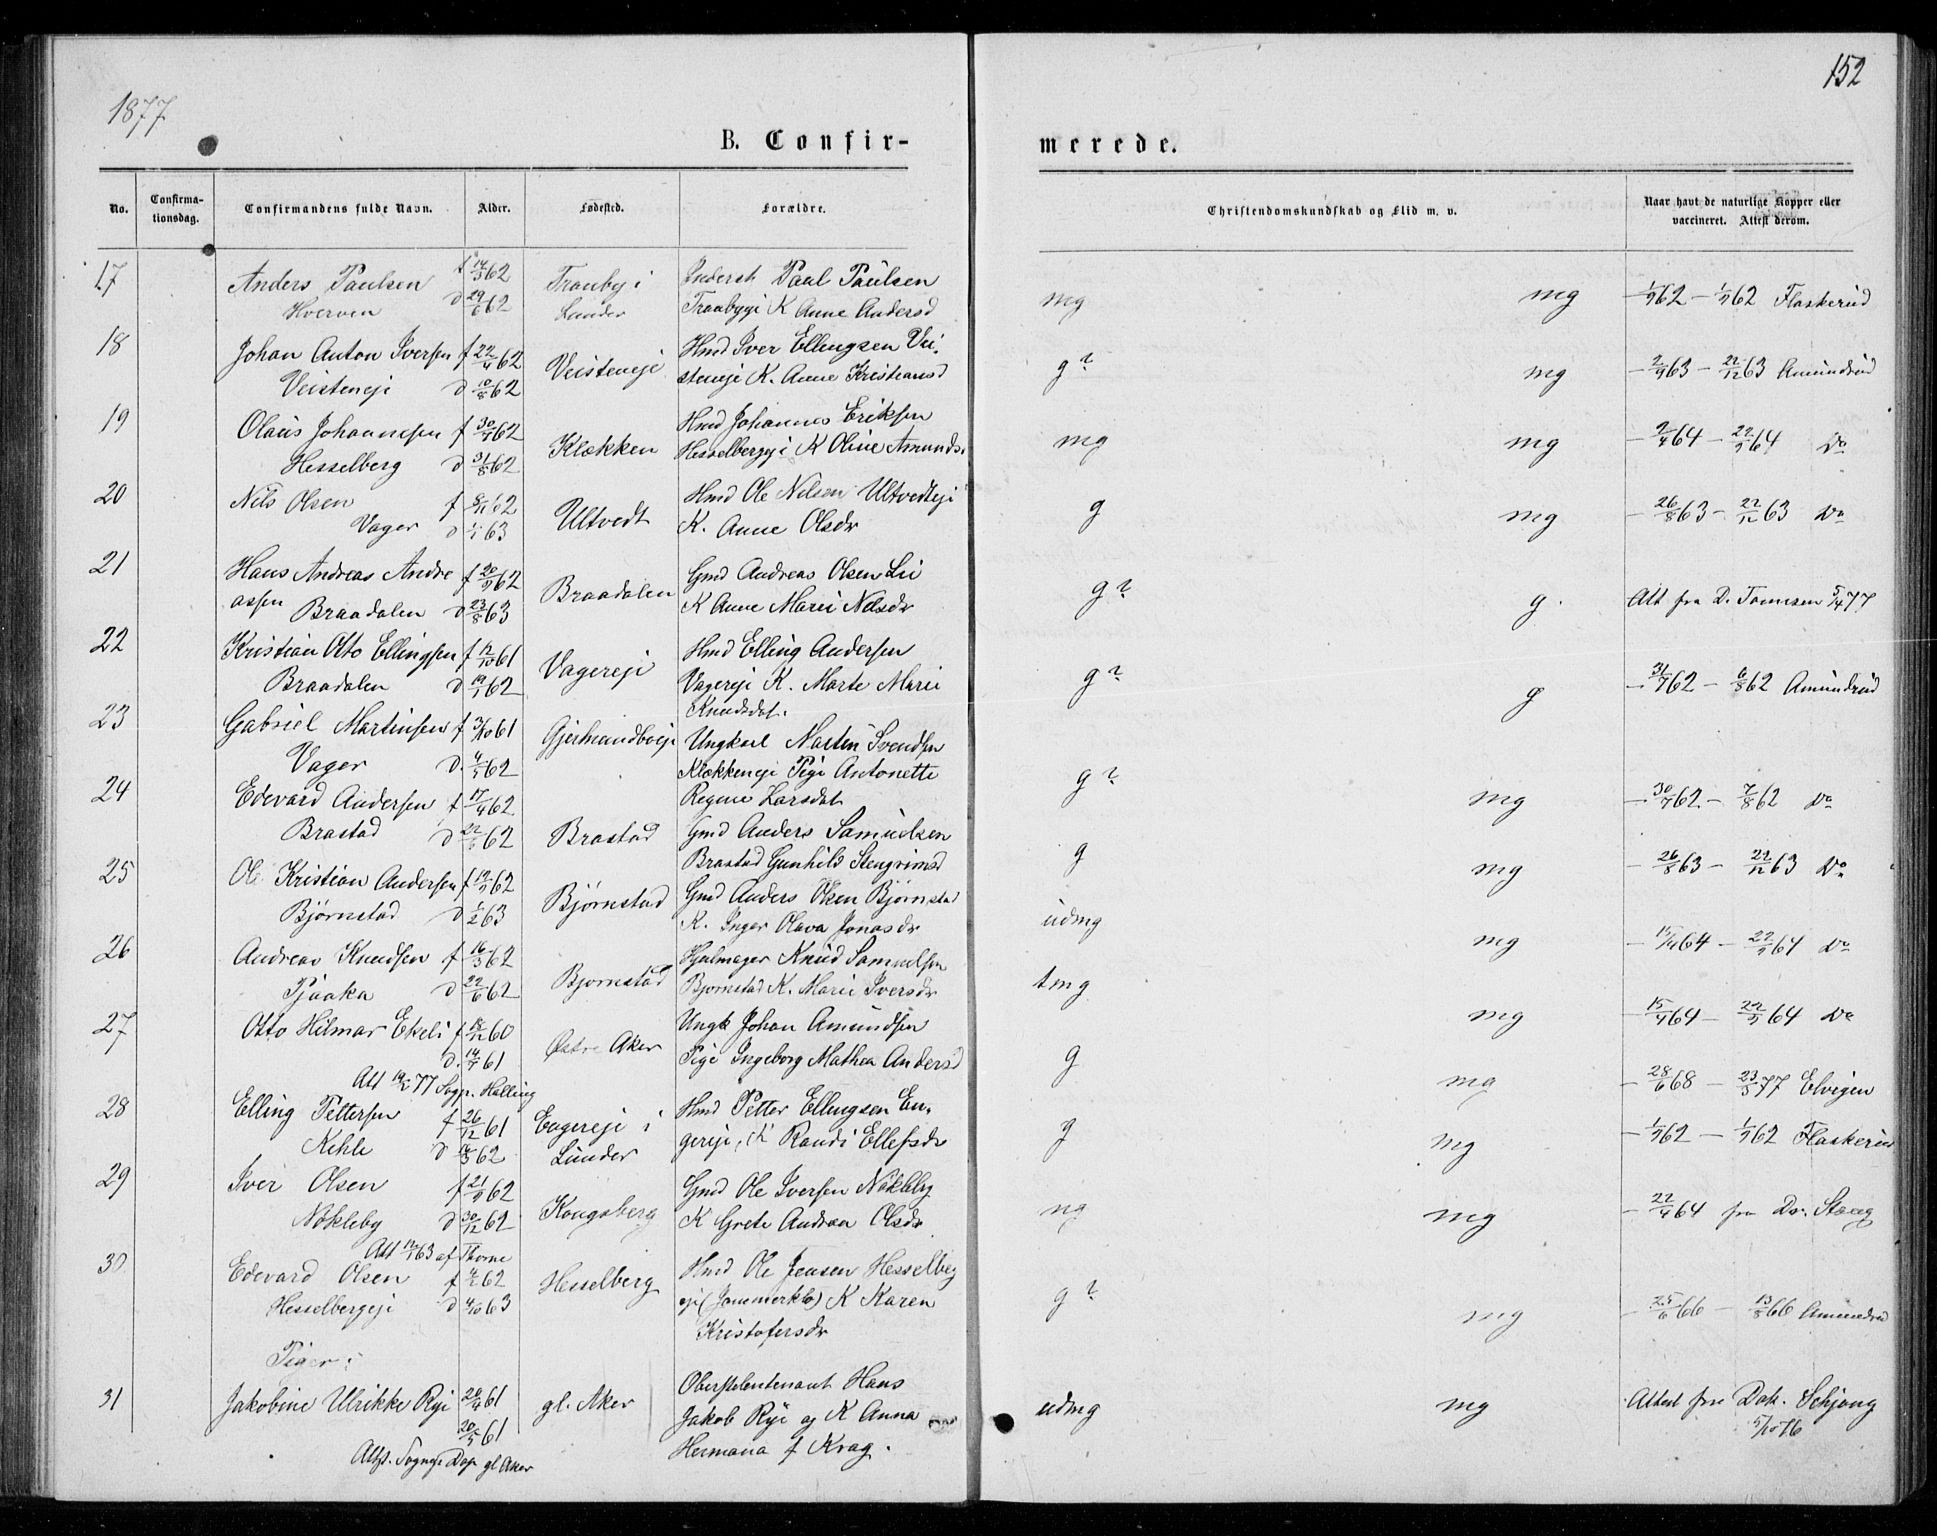 1877
152
B. Confir-
merede.
No.
Confirma-
tionsdag.
Confirmandens fulde Navn.
Alder.
Fødested.
Forældre.
Christendomskundskab og Flid m. v.
Naar havt de naturlige Kopper eller
vaccineret. Attest derom.
17 Anders Paulsen f 14/3 62 Tranby i Inderst Paul Paulsen
Hverven d 29/6 62 Lunder Tranbyeje K Anne Andersd
mg mg 1/9 62 - 1/9 62 Flaskerud
18 Johan Anton Iversen f 22/4 62 Veisteneje Hmd Iver Ellingsen Vei-
Veisteneje d 10/8 62 steneje K. Anne Kristiansd
g? mg 2/9 63 - 22/12 63 Amundrud
19 Olaus Johannesen f 30/7 62 Klækken Hmd Johannes Eriksen
Hesselberg d 31/8 62 Hesselbergeje K Oline Amunds.
mg mg 2/4 64 - 22/9 64 Do
20 Nils Olsen f 8/11 62 Ultvedt Hmd Ole Nelsen Ultvedteje
Vager d 1/1 63 K. Anne Olsdr
g mg 26/8 63 - 22/12 63 Do
21 Hans Andreas Andre f 20/9 62 Braadalen Gmd Andreas Olsen Lii
assen Braadalen d 23/8 63 K Anne Marie Nelsdr
g? g. Att fra D. Tomesen 5/4 77
22 Kristian Otto Ellingsen f 12/10 61 Vagereje Hmd Elling Andersen
Braadalen d 19/1 62 Vagereje K. Marte Marie
Knudsdat.
g? g 31/7 62 - 6/8 62 Amundrud
23 Gabriel Martinsen f 3/10 61 Gjermundboeje Ungkarl Martin Svendsen
Vager d. 4/5 62 Klækkeneje Pige Antonette
Regine Larsdat
g? mg 30/7 62 - 7/8 62 Do
24 Edevard Andersen f 17/4 62 Brastad Gmd Anders Samuelsen
Brastad d 22/6 62 Brastad Gunhild Stengrimsd
g mg 26/8 63 - 22/12 63 Do
25 Ole Kristian Andersen f 19/9 62 Bjørnstad Gmd Anders Olsen Bjørnstad
Bjørnstad d 1/2 63 K. Inger Olava Jonasdr
udmg mg 15/4 64 - 22/9 64 Do
26 Andreas Knudsen f 16/3 62 Bjørnstad Hjulmager Knud Samuelsen
Pjaaka d 22/6 62 Bjornstad K. Marie Iversdr
tmg mg 15/4 64 - 22/9 64 Do
27 Otto Hilmar Ekeli f 18/12 60 Østre Aker Ungk Johan Amundsen
d. 14/4 61 Pige Ingeborg Mathea Andersd
Att 19/2 77 Sogp. Halling
g mg 28/6 68 - 23/5 77 Elvigen
28 Elling Pettersen f 26/12 61 Engereje i Hmd Petter Ellingsen En-
Kihle d 16/3 62 Lunder gereje, K Randi Ellefsdr
g mg 1/9 62 - 1/9 62 Flaskerud
29 Iver Olsen f 21/9 62 Kongsberg Gmd Ole Iversen Nökleby
Nökleby d 30/12 62 K Grete Andrea Olsdr
Att 12/1 63 af Thorne
ng mg 22/4 64 fra Dr. Stang
30 Edevard Olsen f 4/2 62 Hesselberg Hmd Ole Jensen Hesselberg
Hesselbergeje d 4/10 63 eje (Jommerkb) K Karen
Kristofersdr
g? mg 25/6 66 - 13/8 66 Amundrud
Piger:
31 Jakobine Ulrikke Rye 20/4 61 gl. Aker Oberstleutenant Hans
20/5 61 Jakob Rye og K Anna
Hermana f Krag.
Attst. Sognep Dop gl Aker
udmg mg Attest fra Dok. Schjøng
5/10 76